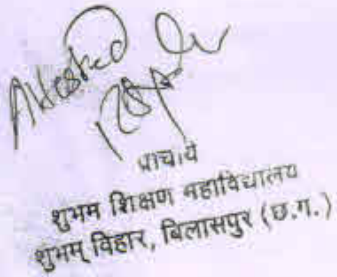 Attested
प्राचार्य
शुभम शिक्षण महाविद्यालय
शुभम् विहार, बिलासपुर (छ.ग.)